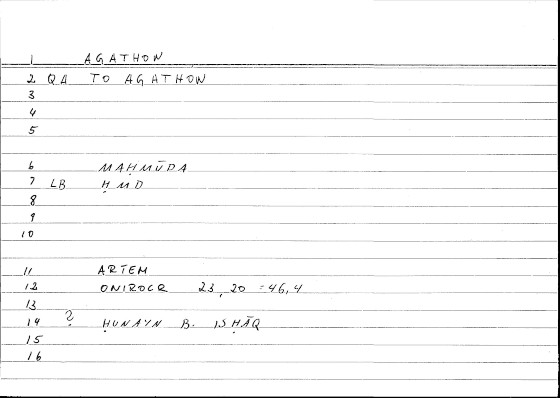 1 AGATHON
2 QA TO AGATHON
3
4
5
6 MAḤMŪDA
7 LB ḤMD
8
9
10
11 ARTEM
12 ONIROCR 23, 20 = 46, 4
13
14 ? ḤUNAYN B. ISḤĀQ
15
16